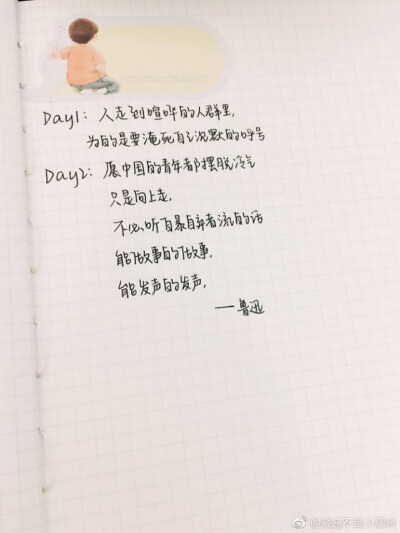 Day1: 人走到喧哗的人群里,
为的是要淹死自己沉默的呼号
Day2: 愿中国的青年都摆脱冷气
只是向上走,
不必听自暴自弃者流的话
能做事的做事,
能发声的发声,
——鲁迅